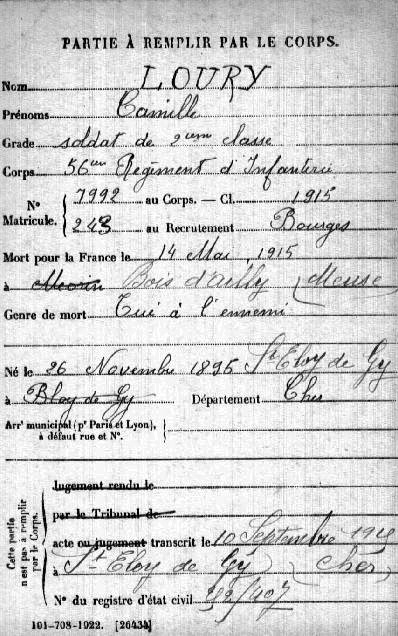 PARTIE À REMPLIR PAR LE CORPS.
Nom LOURY
Prénoms Camille
Grade soldat de 2eme classe
Corps 56eme Régiment d'Infanterie
N° Matricule. { 7992 au Corps. — Cl. 1915
243 au Recrutement Bourges
Mort pour la France le 14 Mai 1915
à Bois d'ailly (Meuse)
Genre de mort Tué à l'ennemi
Né le 26 Novembre 1895 St Eloy de Gy
à Eloy de Gy Département Cher
Arrt municipal (pr Paris et Lyon), à défaut rue et N°. {
Cette partie n'est pas à remplir par le Corps.
Jugement rendu le
par le Tribunal de
acte ou jugement transcrit le 10 Septembre
à St Eloy de Gy (Cher)
N° du registre d'état civil
101-708-1922. [26434]